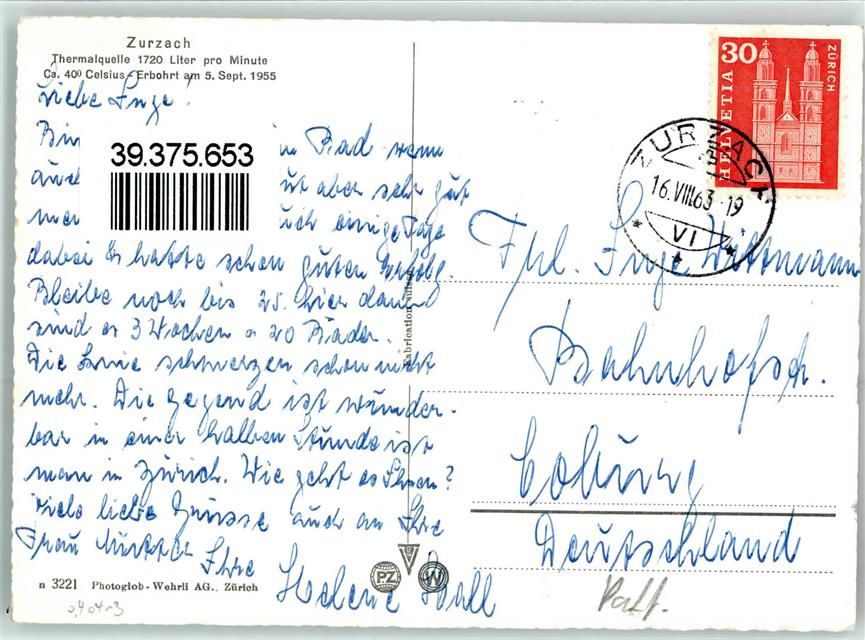 Zurzach
Thermalquelle 1720 Liter pro Minute
Ca. 40⁰ Celsius - Erbohrt am 5. Sept. 1955
Liebe Inge!
Bin Bad wenn
auch aber sehr gut
auch einige Tage
dabei & hatte schon guten Erfolg.
Bleibe noch bis 25. hier dann
sind es 3 Wochen = 20 Bäder.
Die Knie schmerzen schon nicht
mehr. Die Gegend ist wunder-
bar in einer halben Stunde ist
man in Zürich. Wie geht es Ihnen?
Viele liebe Grüsse auch an Ihre
Frau Mutter Ihre
Helene
39.375.653
n 3221 Photoglob-Wehrli AG., Zürich
PZ W
Fabrication suisse
30
HELVETIA
ZÜRICH
ZURZACH
16.VIII.63-19
VI
Frl. Inge Wittmann
Bahnhofstr.
Coburg
Deutschland